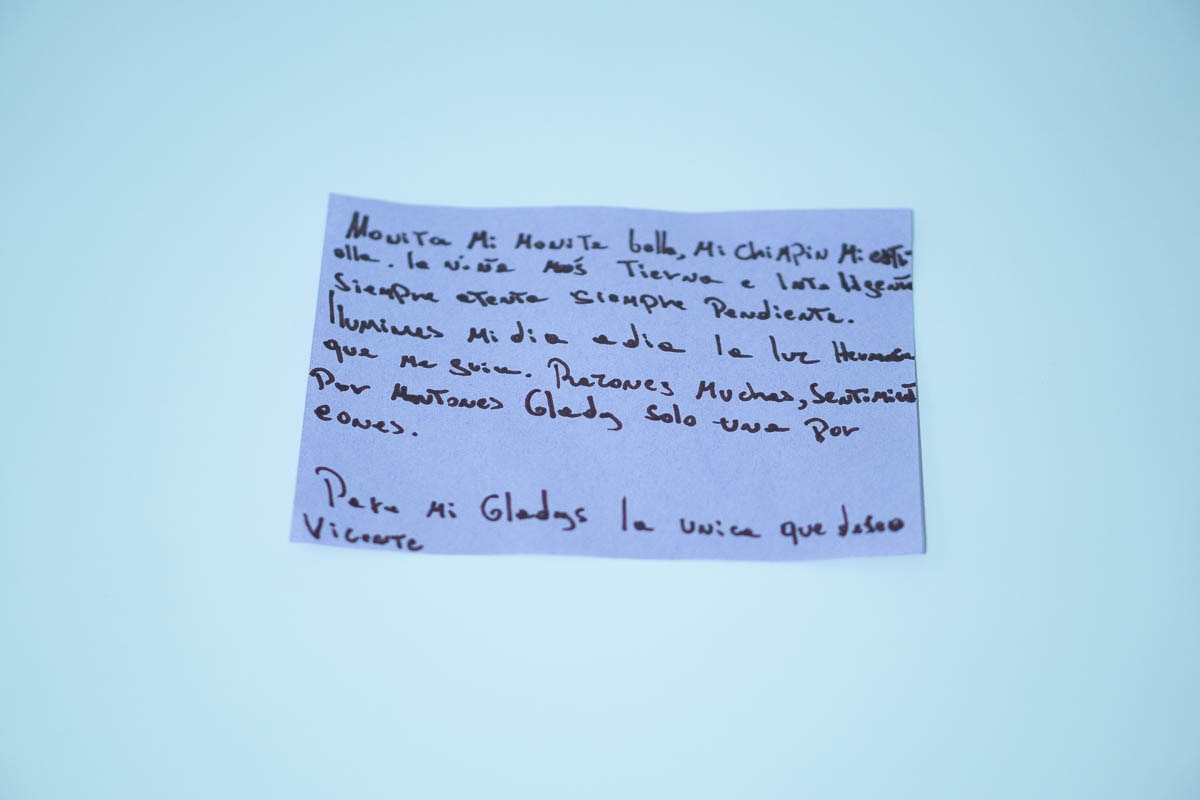 Monita Mi Monita bella, Mi Chimpin Mi estr-
ella. la niña más Tierna e Inteligente
Siempre atenta Siempre Pendiente.
Iluminas Mi dia a dia la luz Hermosa
que Me guia. Razones Muchas, Sentimient
Por Montones Gladys Solo una Por
eones.
Para Mi Gladys la unica que deseo
Vicente